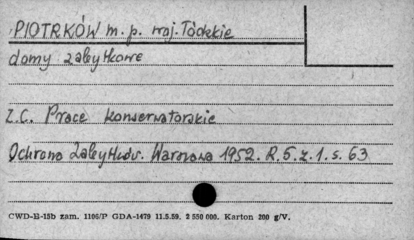 PIOTRKÓW m. p. woj. Łódzkie
domy zabytkowe
Z.C. Prace konserwatorskie
Ochrona Zabytków. Warszawa 1952. R. 5. z. 1. s. 63
CWD-B-15b zam. 1106/P GDA-1479 11.5.59. 2 550 000. Karton 200 g/V.